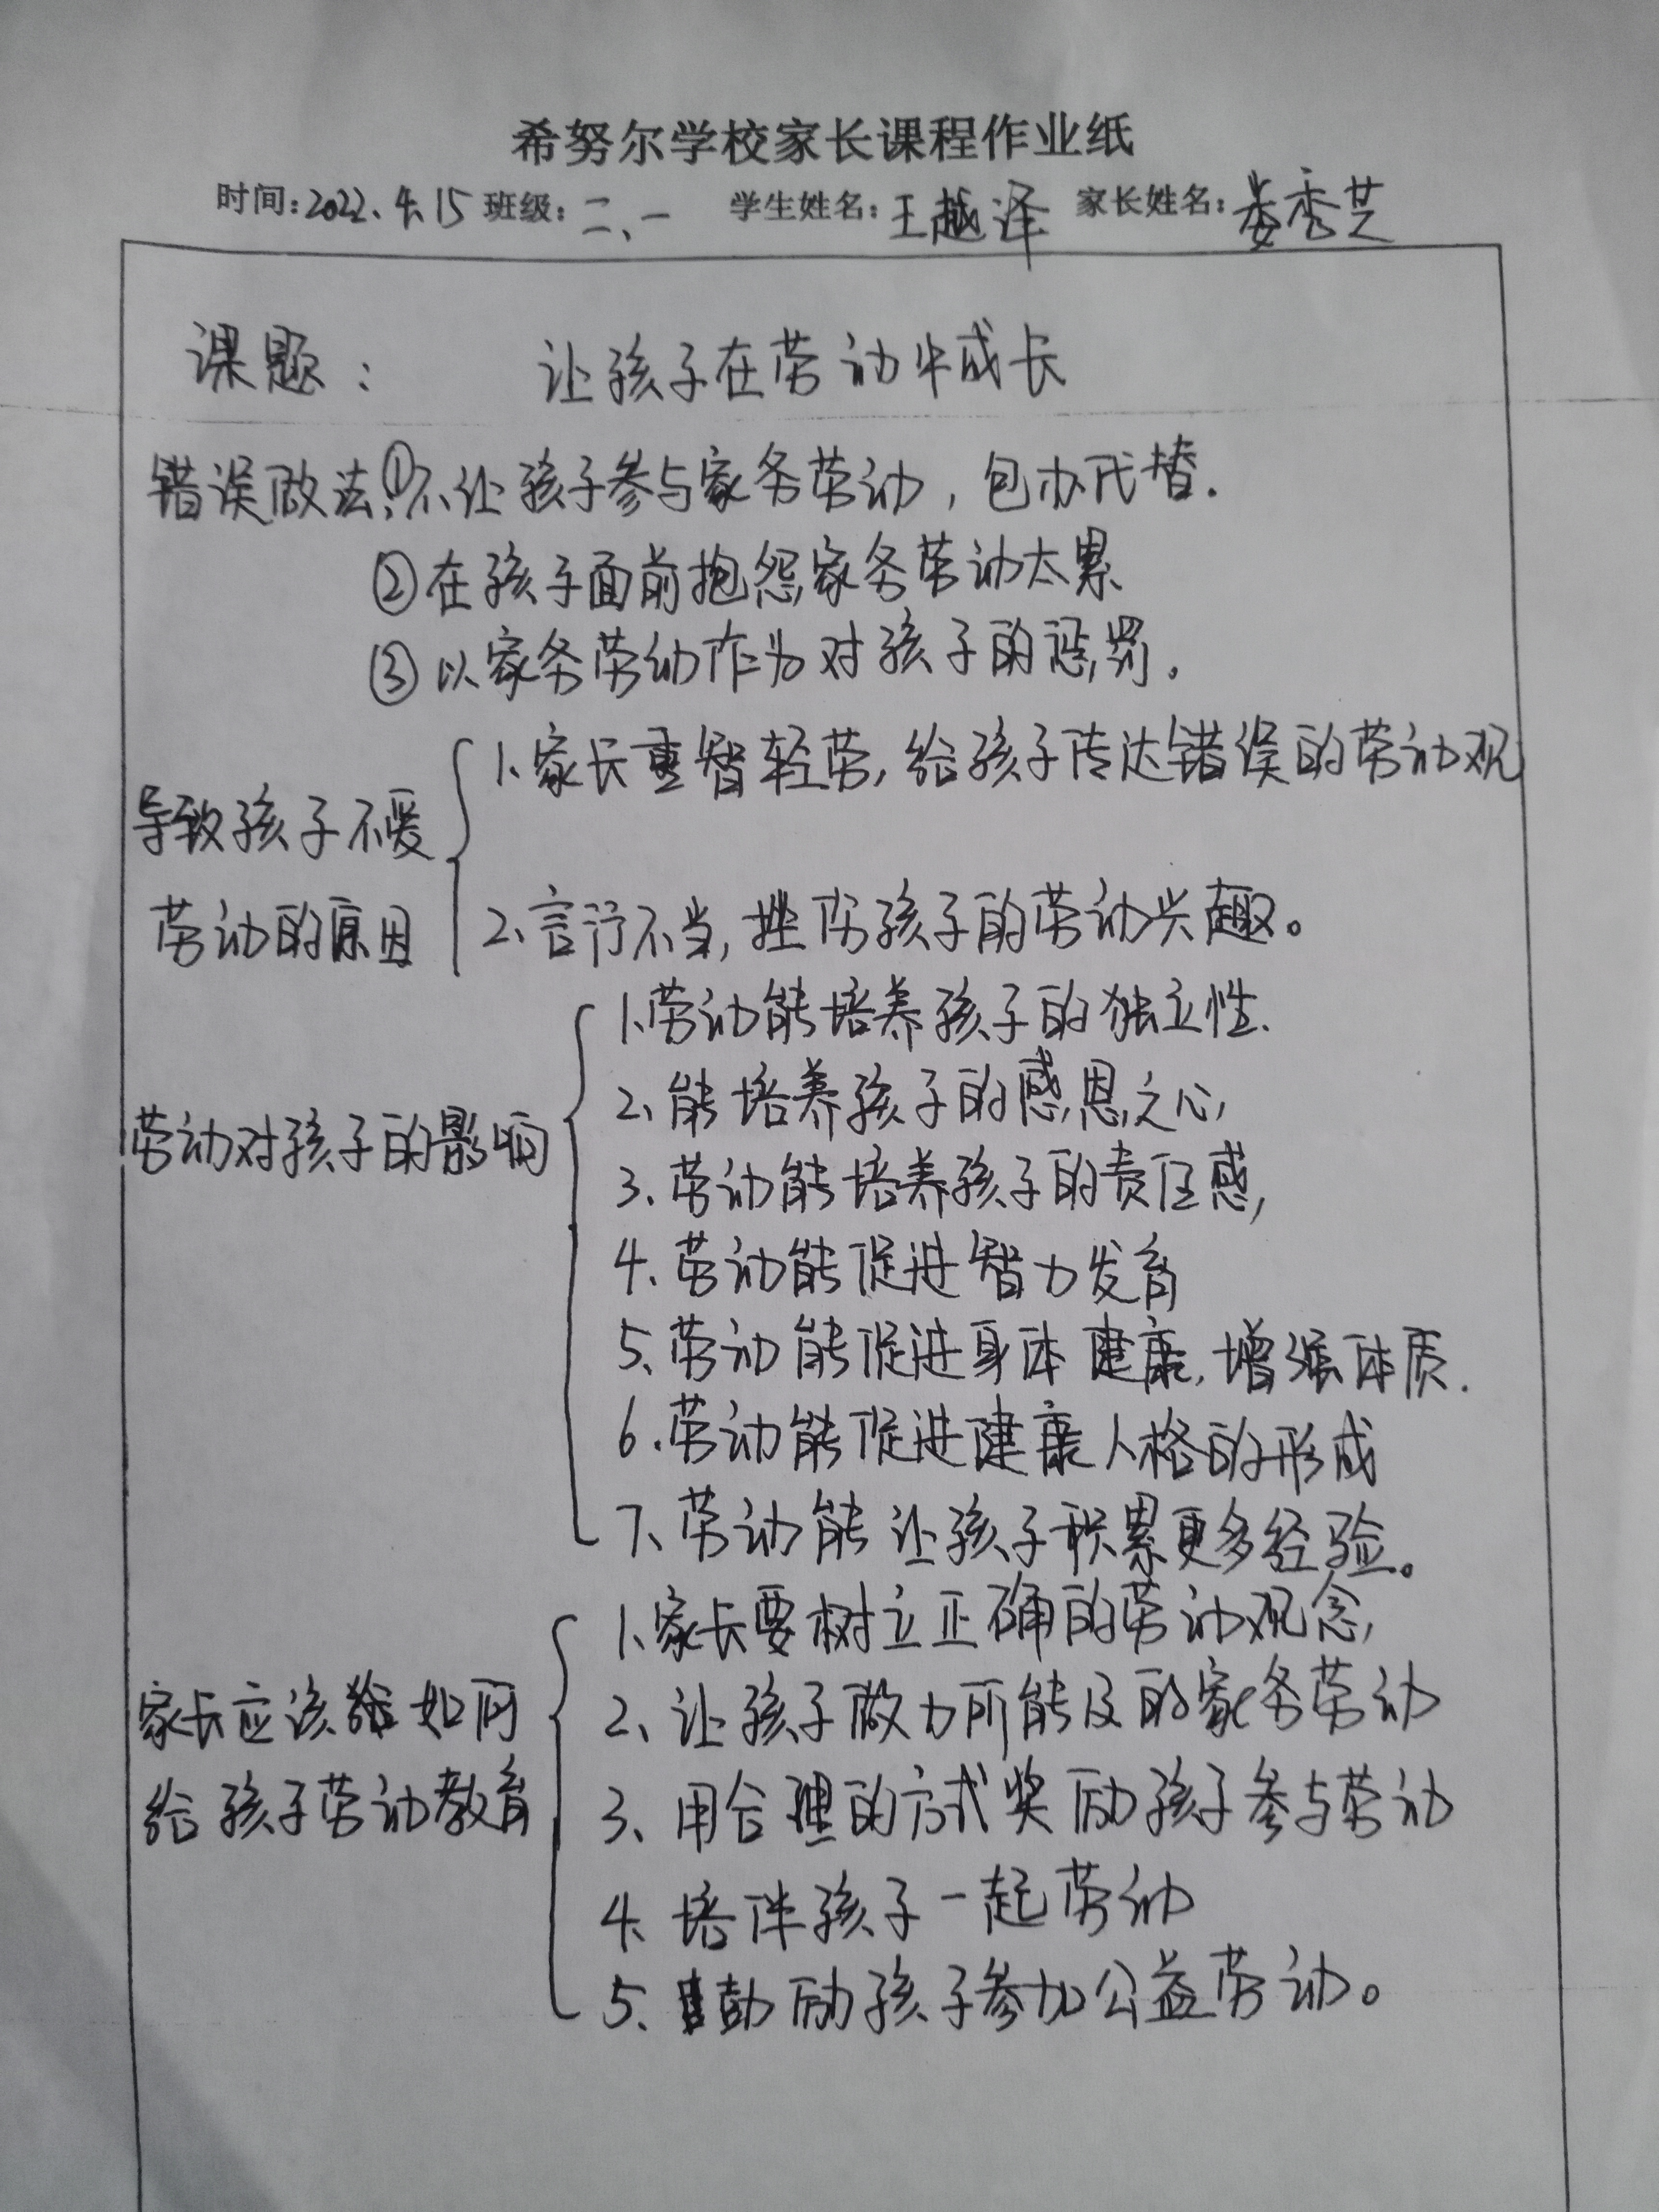 希努尔学校家长课程作业纸
时间:2022.4.15 班级:二、一 学生姓名:王越泽 家长姓名:娄秀芝
课题: 让孩子在劳动中成长
错误做法:①不让孩子参与家务劳动,包办代替.
②在孩子面前抱怨家务劳动太累
③以家务劳动作为对孩子的惩罚.
1、家长重智轻劳,给孩子传达错误的劳动观
导致孩子不爱
劳动的原因
2、言行不当,挫伤孩子的劳动兴趣。
1、劳动能培养孩子的独立性.
2、能培养孩子的感恩之心,
劳动对孩子的影响
3、劳动能培养孩子的责任感,
4、劳动能促进智力发育
5、劳动能促进身体健康,增强体质.
6.劳动能促进健康人格的形成
7、劳动能让孩子积累更多经验。
1、家长要树立正确的劳动观念,
家长应该如何
给孩子劳动教育
2、让孩子做力所能及的家务劳动
3、用合理的方式奖励孩子参与劳动
4、培伴孩子一起劳动
5、鼓励孩子参加公益劳动。